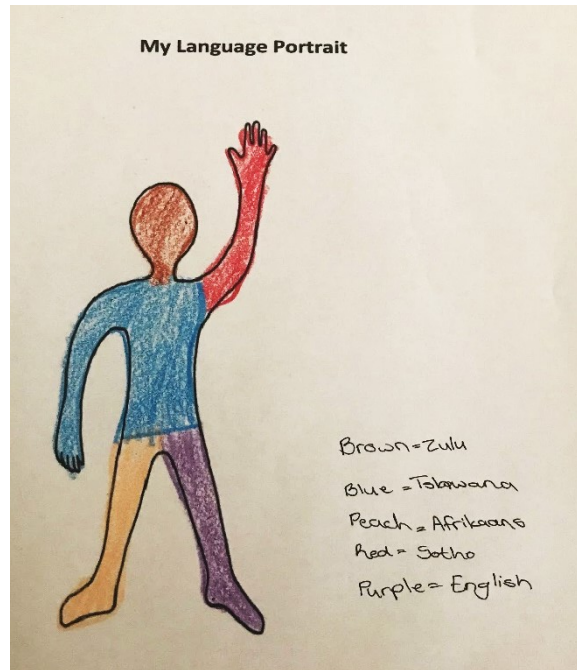 My Language Portrait
Brown = Zulu
Blue = Tstswana
Peach = Afrikaans
Red = Sotho
Purple = English